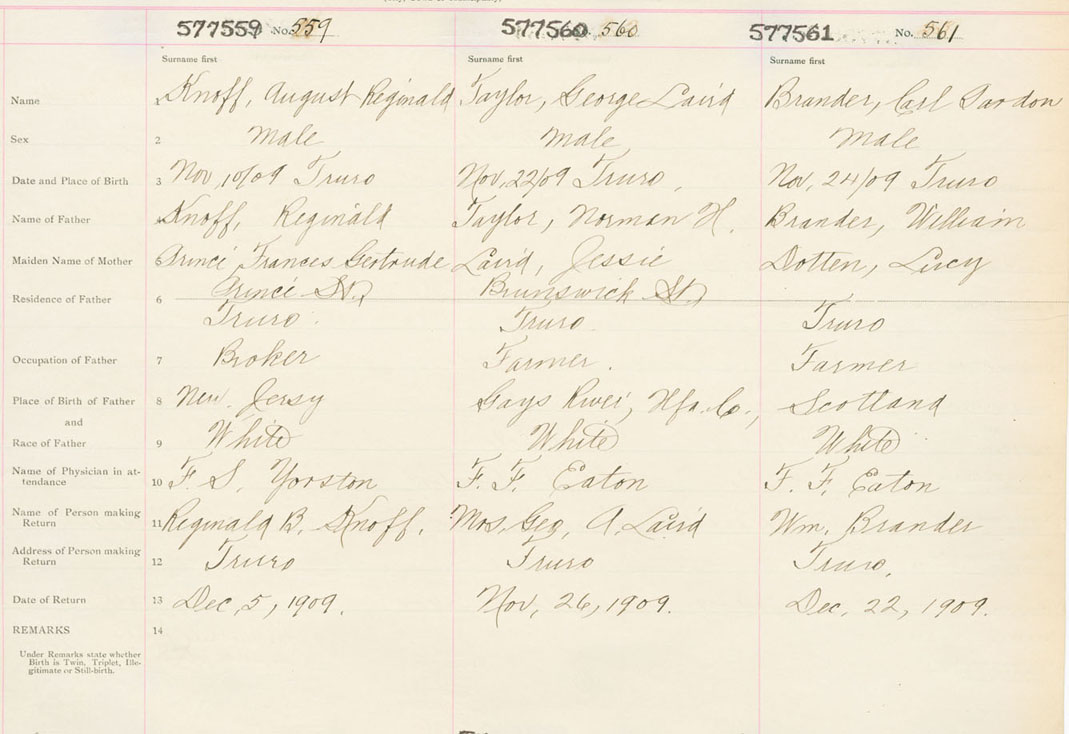 577559 No. 559 577560 560 577561 No. 561
Surname first Surname first Surname first
Name 1 Knoff, August Reginald Taylor, George Laird Brander, Carl Gordon
Sex 2 Male Male Male
Date and Place of Birth 3 Nov, 10/09 Truro Nov, 22/09 Truro. Nov, 24/09 Truro
Name of Father 4 Knoff, Reginald Taylor, Norman H. Brander, William
Maiden Name of Mother 5 Frances Gertrude Laird, Jessie Dotten, Lucy
Prince St. Brunswick St.
Residence of Father 6
Truro. Truro. Truro
Occupation of Father 7 Broker Farmer. Farmer
Place of Birth of Father 8 New. Jersy Gays River, Hfx. Co., Scotland
and
Race of Father 9 White White White
Name of Physician in at-
tendance 10 F. S. Yorston F. F. Eaton F. F. Eaton
Name of Person making
Return 11 Reginald B. Knoff. Mrs. Geo, A. Laird Wm, Brander
Address of Person making
Return 12 Truro Truro Truro.
Date of Return 13 Dec, 5, 1909. Nov, 26, 1909. Dec, 22, 1909.
REMARKS 14
Under Remarks state whether
Birth is Twin, Triplet, Ille-
gitimate or Still-birth.